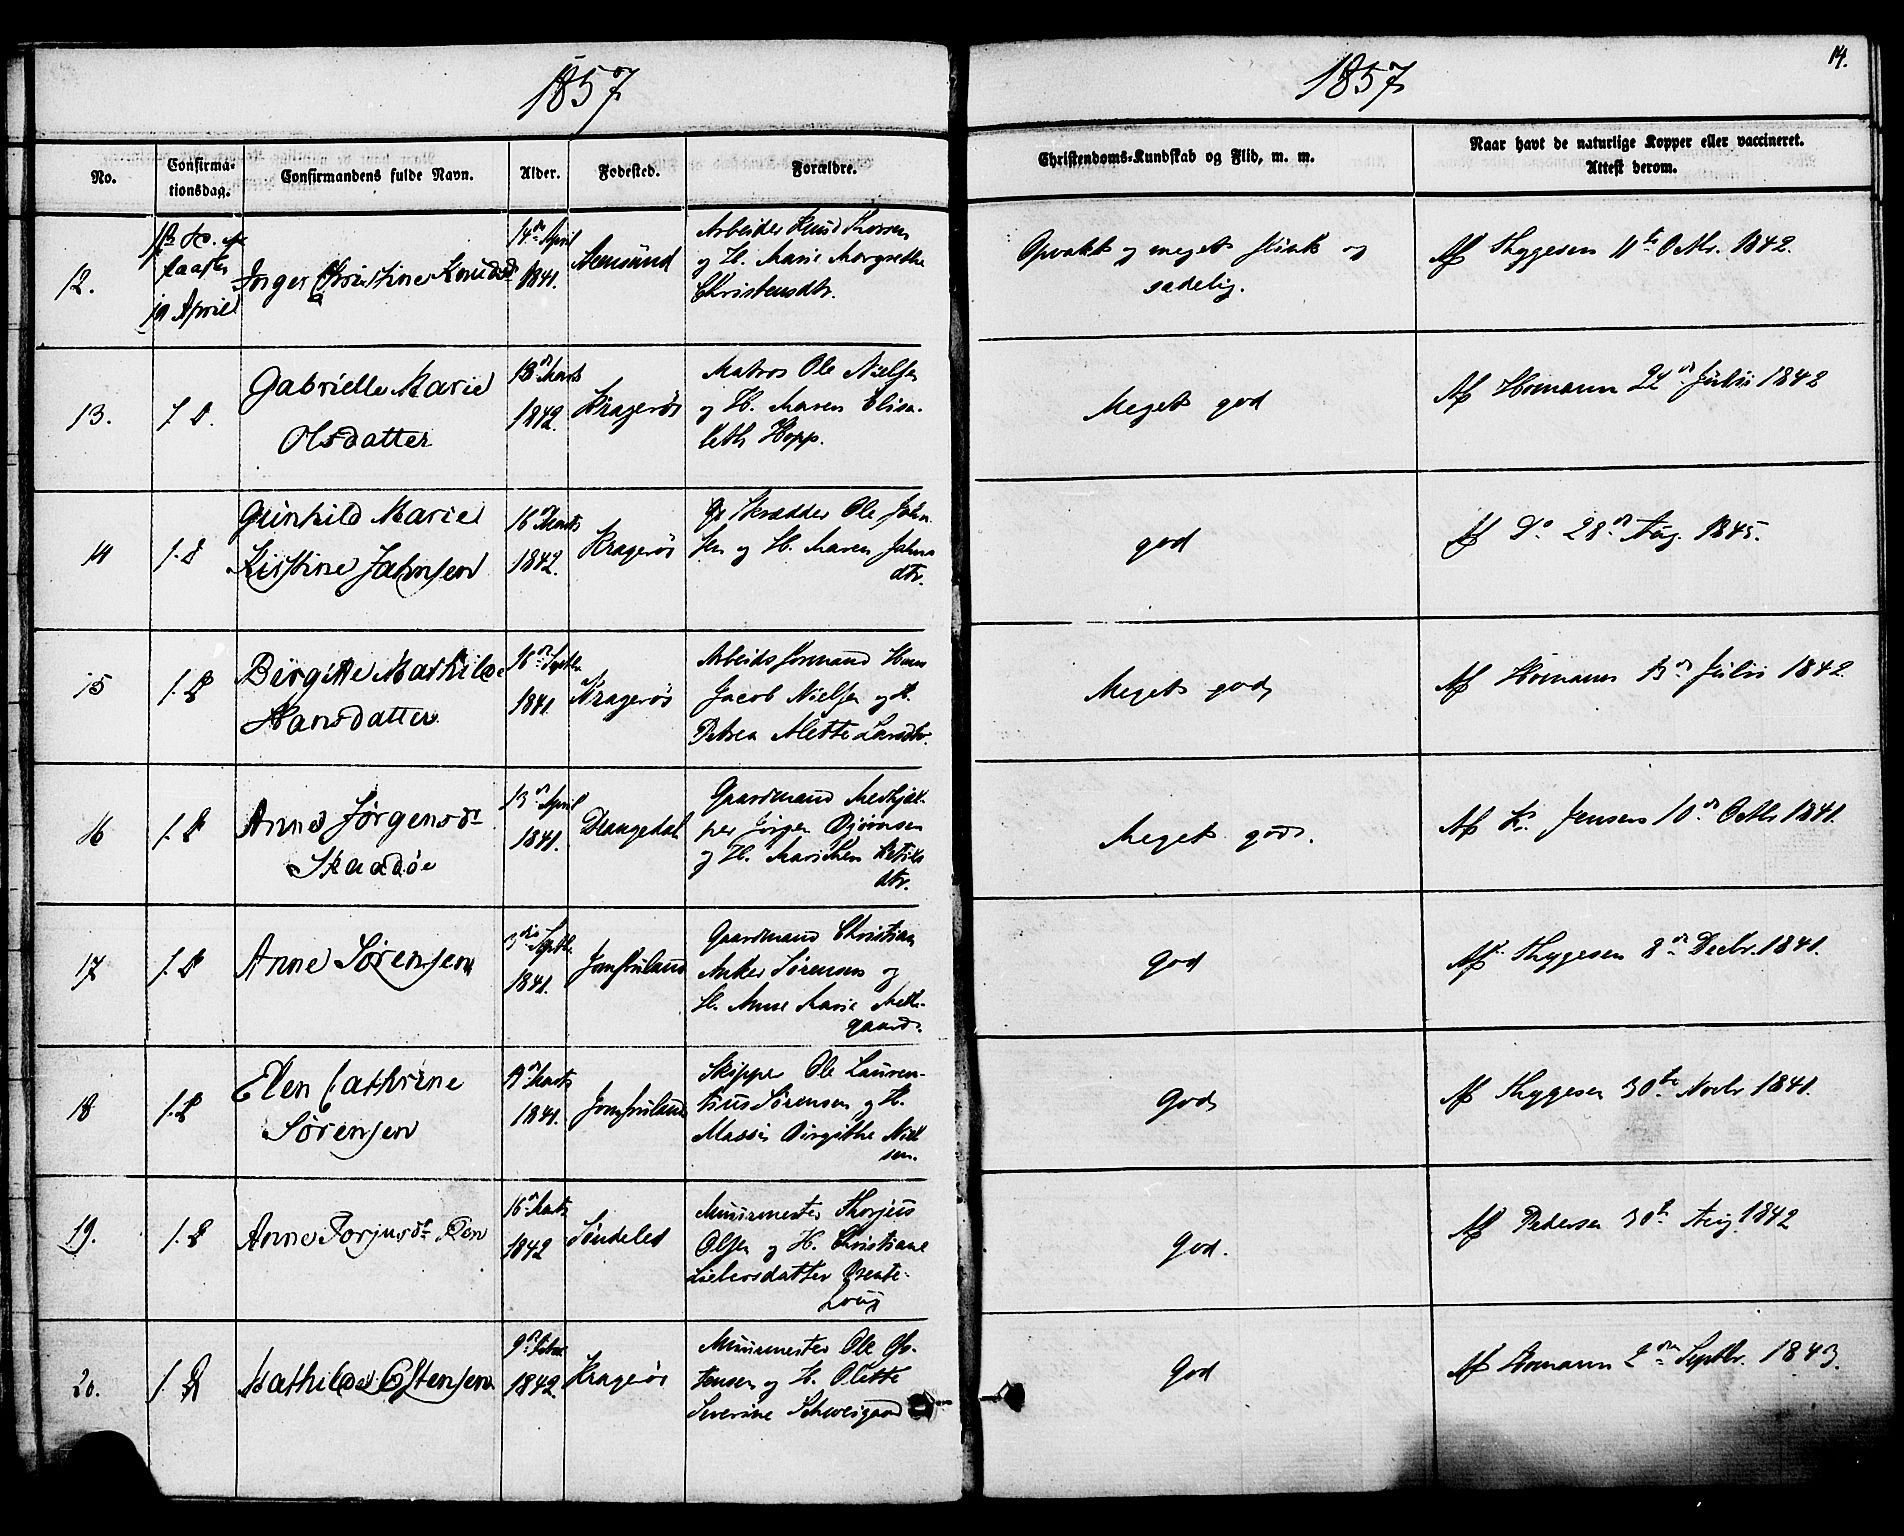 1857
1857
14.
No.
Confirma-
tionsdag.
Confirmandens fulde Navn.
Alder.
Fødested.
Forældre.
Christendoms-Kundskab og Flid, m. m.
Naar havt de naturlige Kopper eller vaccineret.
Attest derom.
12.
19 April
Inger Christine Knudsd
14de April
1841.
Arbeider Knud
og H. Marie Margrethe
Christensdtr.
Opvakt og meget flink og
sædelig.
Af Thygesen 11te Octbr. 1842.
13.
Gabrielle Marie
Olsdatter
13de Marts
1842.
Kragerøe
Matros Ole Nielsen
og H. Maren Elisa-
beth Hopp.
Meget god
Af Homann 22de Julii 1842
14
Gunhild Marie
Kirstine Jahnsen
16de Marts
1842.
Kragerøe
Skrædder Ole Jahn
sen og H. Maren Jahns
dtr.
god
Af Do 28de Aug. 1845.
15
Birgitte Mathilde
Hansdatter
16de Septbr.
1841.
Kragerøe
Arbeidsformand Hans
Jacob Nielsen og H.
Petrea Alette Larsdtr.
Meget god
Af Homann 13de Julii 1842
16
Anne Jørgensdr
Skaadøe
13de April
1841.
Drangedal
Gaardmand Medhjæl-
per Jørgen Bjørnsen
og H. Marichen Ketils
dtr.
Meget god.
Af K. Jensen 10de Octbr 1841.
17
Anne Sørensen
3die Septbr.
1841.
Jomfruland
Gaardmand Christian
Anker Sørensen og
H. Anne Marie
gaard.
God
Af Thygesen 8de Decbr. 1841.
18
Elen Cathrine
Sørensen
Marts
1841.
Jomfruland
Skipper Ole Lauren-
tius Sørensen og H.
Massi Birgithe Niel
sen.
God
Af Thygesen 30te Novbr 1841.
19.
Anne Torjusdr
16de Marts
1842
Søndeled
Muurmester Thorjus
Olsen og H. Christiane
God.
Af Pedersen 30te Aug 1842
20.
Mathilde Ostensen
9de Febr.
1842.
Kragerøe
Muurmester Ole Os-
tensen og H. Olette
Severine Schweigaard
God
Af Homann 2den Septbr. 1843.